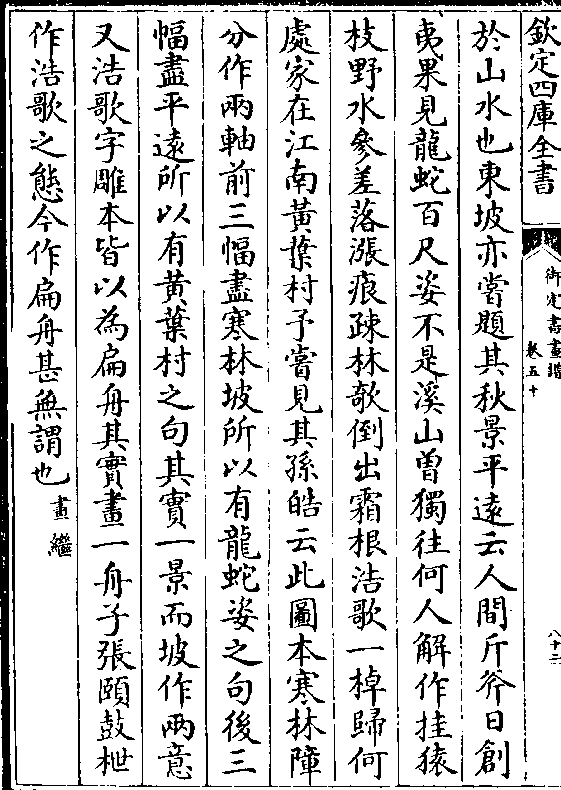 欽定四庫全書
御定書畫譜
卷五十
八十二
於山水也東坡亦嘗題其秋景平遠云人間斤斧日創
夷果見龍蛇百尺姿不是溪山曽獨往何人解作挂猿
枝野水參差落漲痕疎林欹倒出霜根浩歌一棹歸何
處家在江南黃葉村予嘗見其孫皓云此圖本寒林障
分作兩軸前三幅盡寒林坡所以有龍蛇姿之句後三
幅盡平遠所以有黃葉村之句其實一景而坡作兩意
又浩歌字雕本皆以為扁舟其實畫一舟子張頤鼓枻
作浩歌之態今作扁舟甚無謂也畫繼